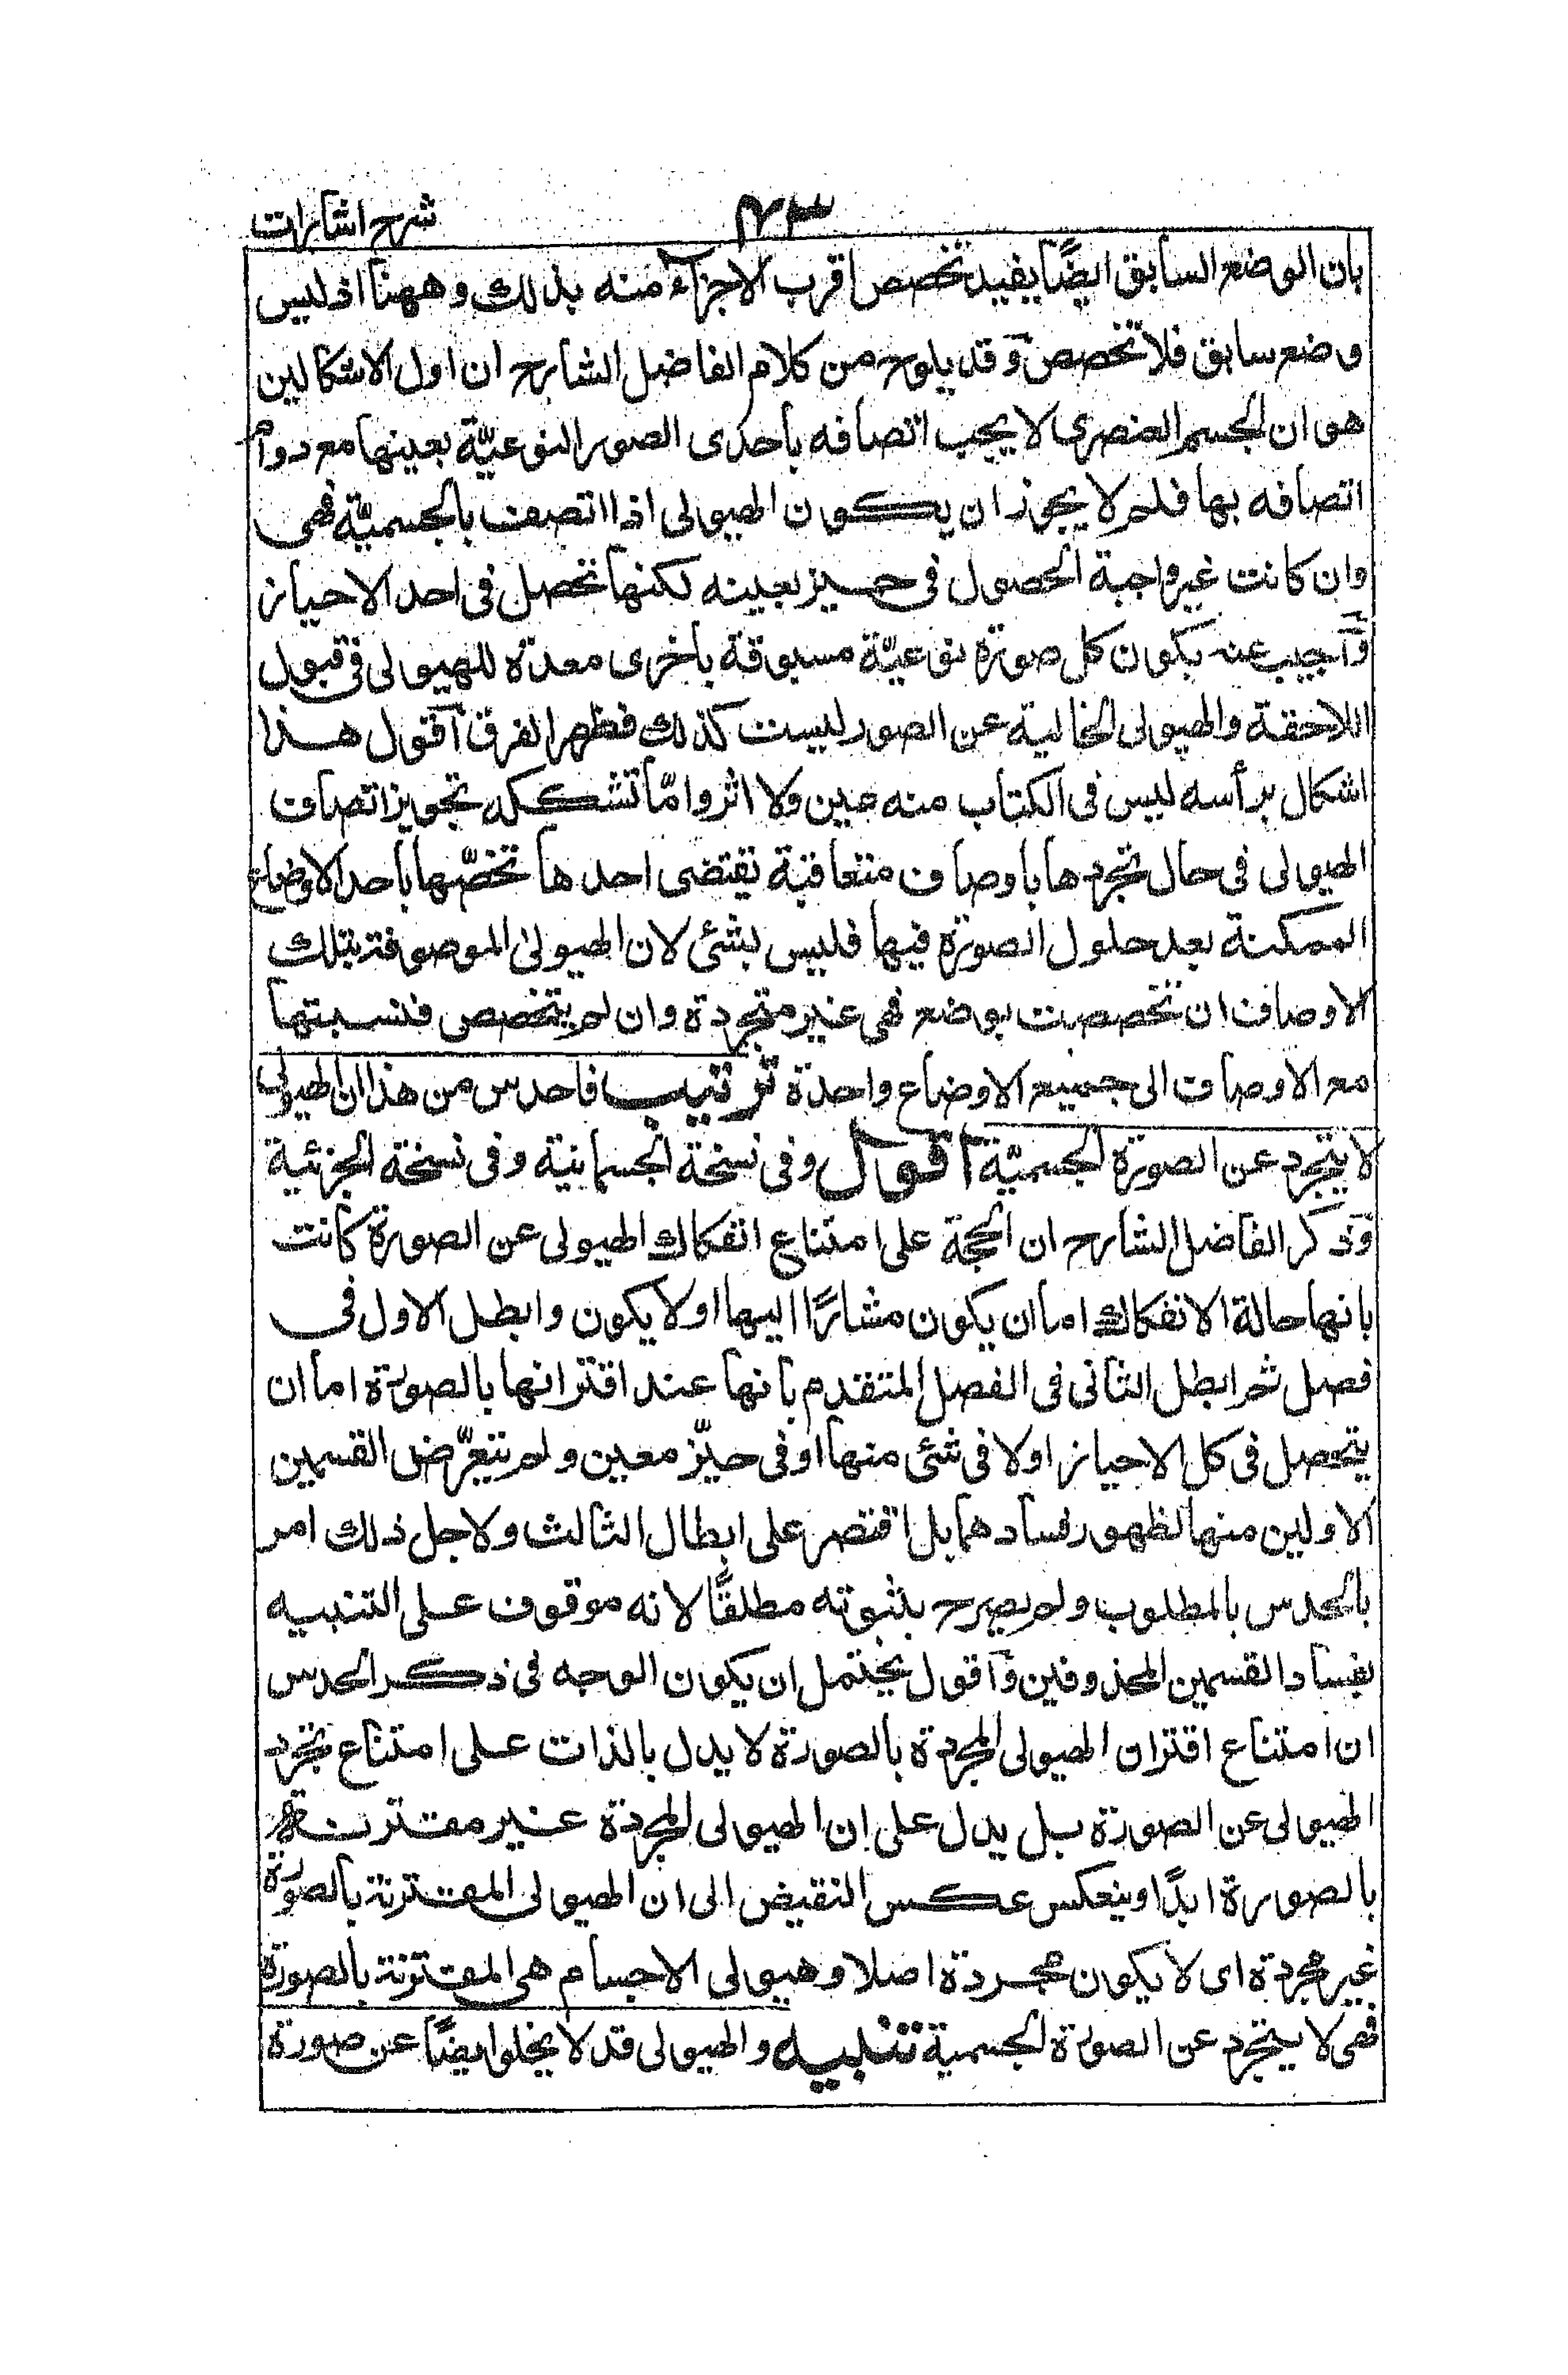 شرح اشارات
بان الوضع السابق ايضًا يفيد تخصص اقرب الاجزاء منه بذلك وههنا اذ ليس
وضع سابق فلا تخصص وقد يلوح من كلام الفاضل الشارح ان اول الاشكالين
هو ان الجسم العنصرى لا يجب اتصافه باحدى الصور النوعيّة بعينها مع دوام
اتصافه بها فلم لا يجوز ان يكون الهيولى اذا اتصفت بالجسميّة فهى
وان كانت غير واجبة الحصول فى حيز بعينه لكنها تحصل فى احد الاحياز
وآجيب عنه بكون كل صورة نوعيّة مسبوقة باخرى معدّة للهيولى فى قبول
اللاحقة والهيولى الخالية عن الصور ليست كذلك فظهر الفرق آقول هذا
اشكال برأسه ليس فى الكتاب منه عين ولا اثر وامّا تشككه بتجويز اتصاف
الهيولى فى حال تجردها باوصاف متعاقبة تقتضى احدها تخصّها باحد الاوضاع
الممكنة بعد حلول الصورة فيها فليس بشئ لان الهيولى الموصوفة بتلك
الاوصاف ان تخصصت بوضع فهى غير متجردة وان لم يتخصص فنسبتها
مع الاوصاف الى جميع الاوضاع واحدة ترتيب فاحدس من هذا ان الهيولى
لا يتجرد عن الصورة الجسميّة آقول وفى نسخة الجسمانية وفى نسخة الجزئية
وذكر الفاضل الشارح ان الحجة على امتناع انفكاك الهيولى عن الصورة كانت
بانها حالة الانفكاك اما ان يكون مشارًا اليها او لا يكون وابطل الاول فى
فصل ثم ابطل الثانى فى الفصل المتقدم بانها عند اقترانها بالصورة اما ان
يتحصل فى كل الاحياز او لا فى شئ منها او فى حيّز معين ولم يتعرّض القسمين
الاولين منها لظهور فسادهما بل اقتصر على ابطال الثالث ولاجل ذلك امر
بالحدس بالمطلوب ولم يصرح بثبوته مطلقًا لانه موقوف على التنبيه
بفساد القسمين المحذوفين وآقول يحتمل ان يكون الوجه فى ذكر الحدس
ان امتناع اقتران الهيولى المجردة بالصورة لا يدل بالذات على امتناع تجرد
الهيولى عن الصورة بل يدل على ان الهيولى المجردة غير مقترنة
بالصورة ابدًا وينعكس عكس النقيض الى ان الهيولى المقترنة بالصورة
غير مجردة اى لا يكون مجردة اصلا وهيولى الاجسام هى المقترنة بالصورة
فهى لا يتجرد عن الصورة الجسمية تنبيه والهيولى قد لا يخلو ايضًا عن صورة